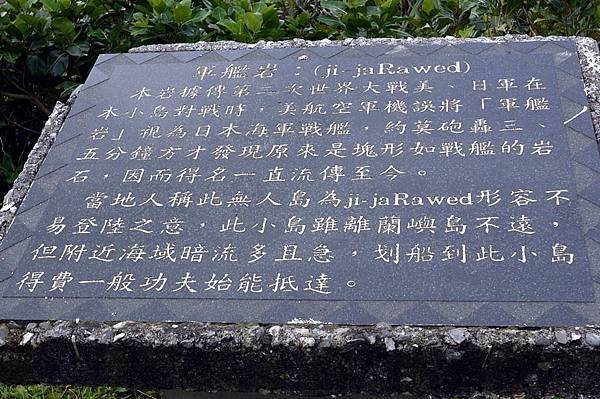 軍艦岩：(ji-jaRawed)
本岩據傳第二次世界大戰美、日軍在
本小島對戰時，美航空軍機誤將「軍艦
岩」視為日本海軍戰艦，約莫砲轟三、
五分鐘方才發現原來是塊形如戰艦的岩
石，因而得名一直流傳至今。
當地人稱此無人島為ji-jaRawed形容不
易登陸之意，此小島雖離蘭嶼島不遠，
但附近海域暗流多且急，划船到此小島
得費一般功夫始能抵達。